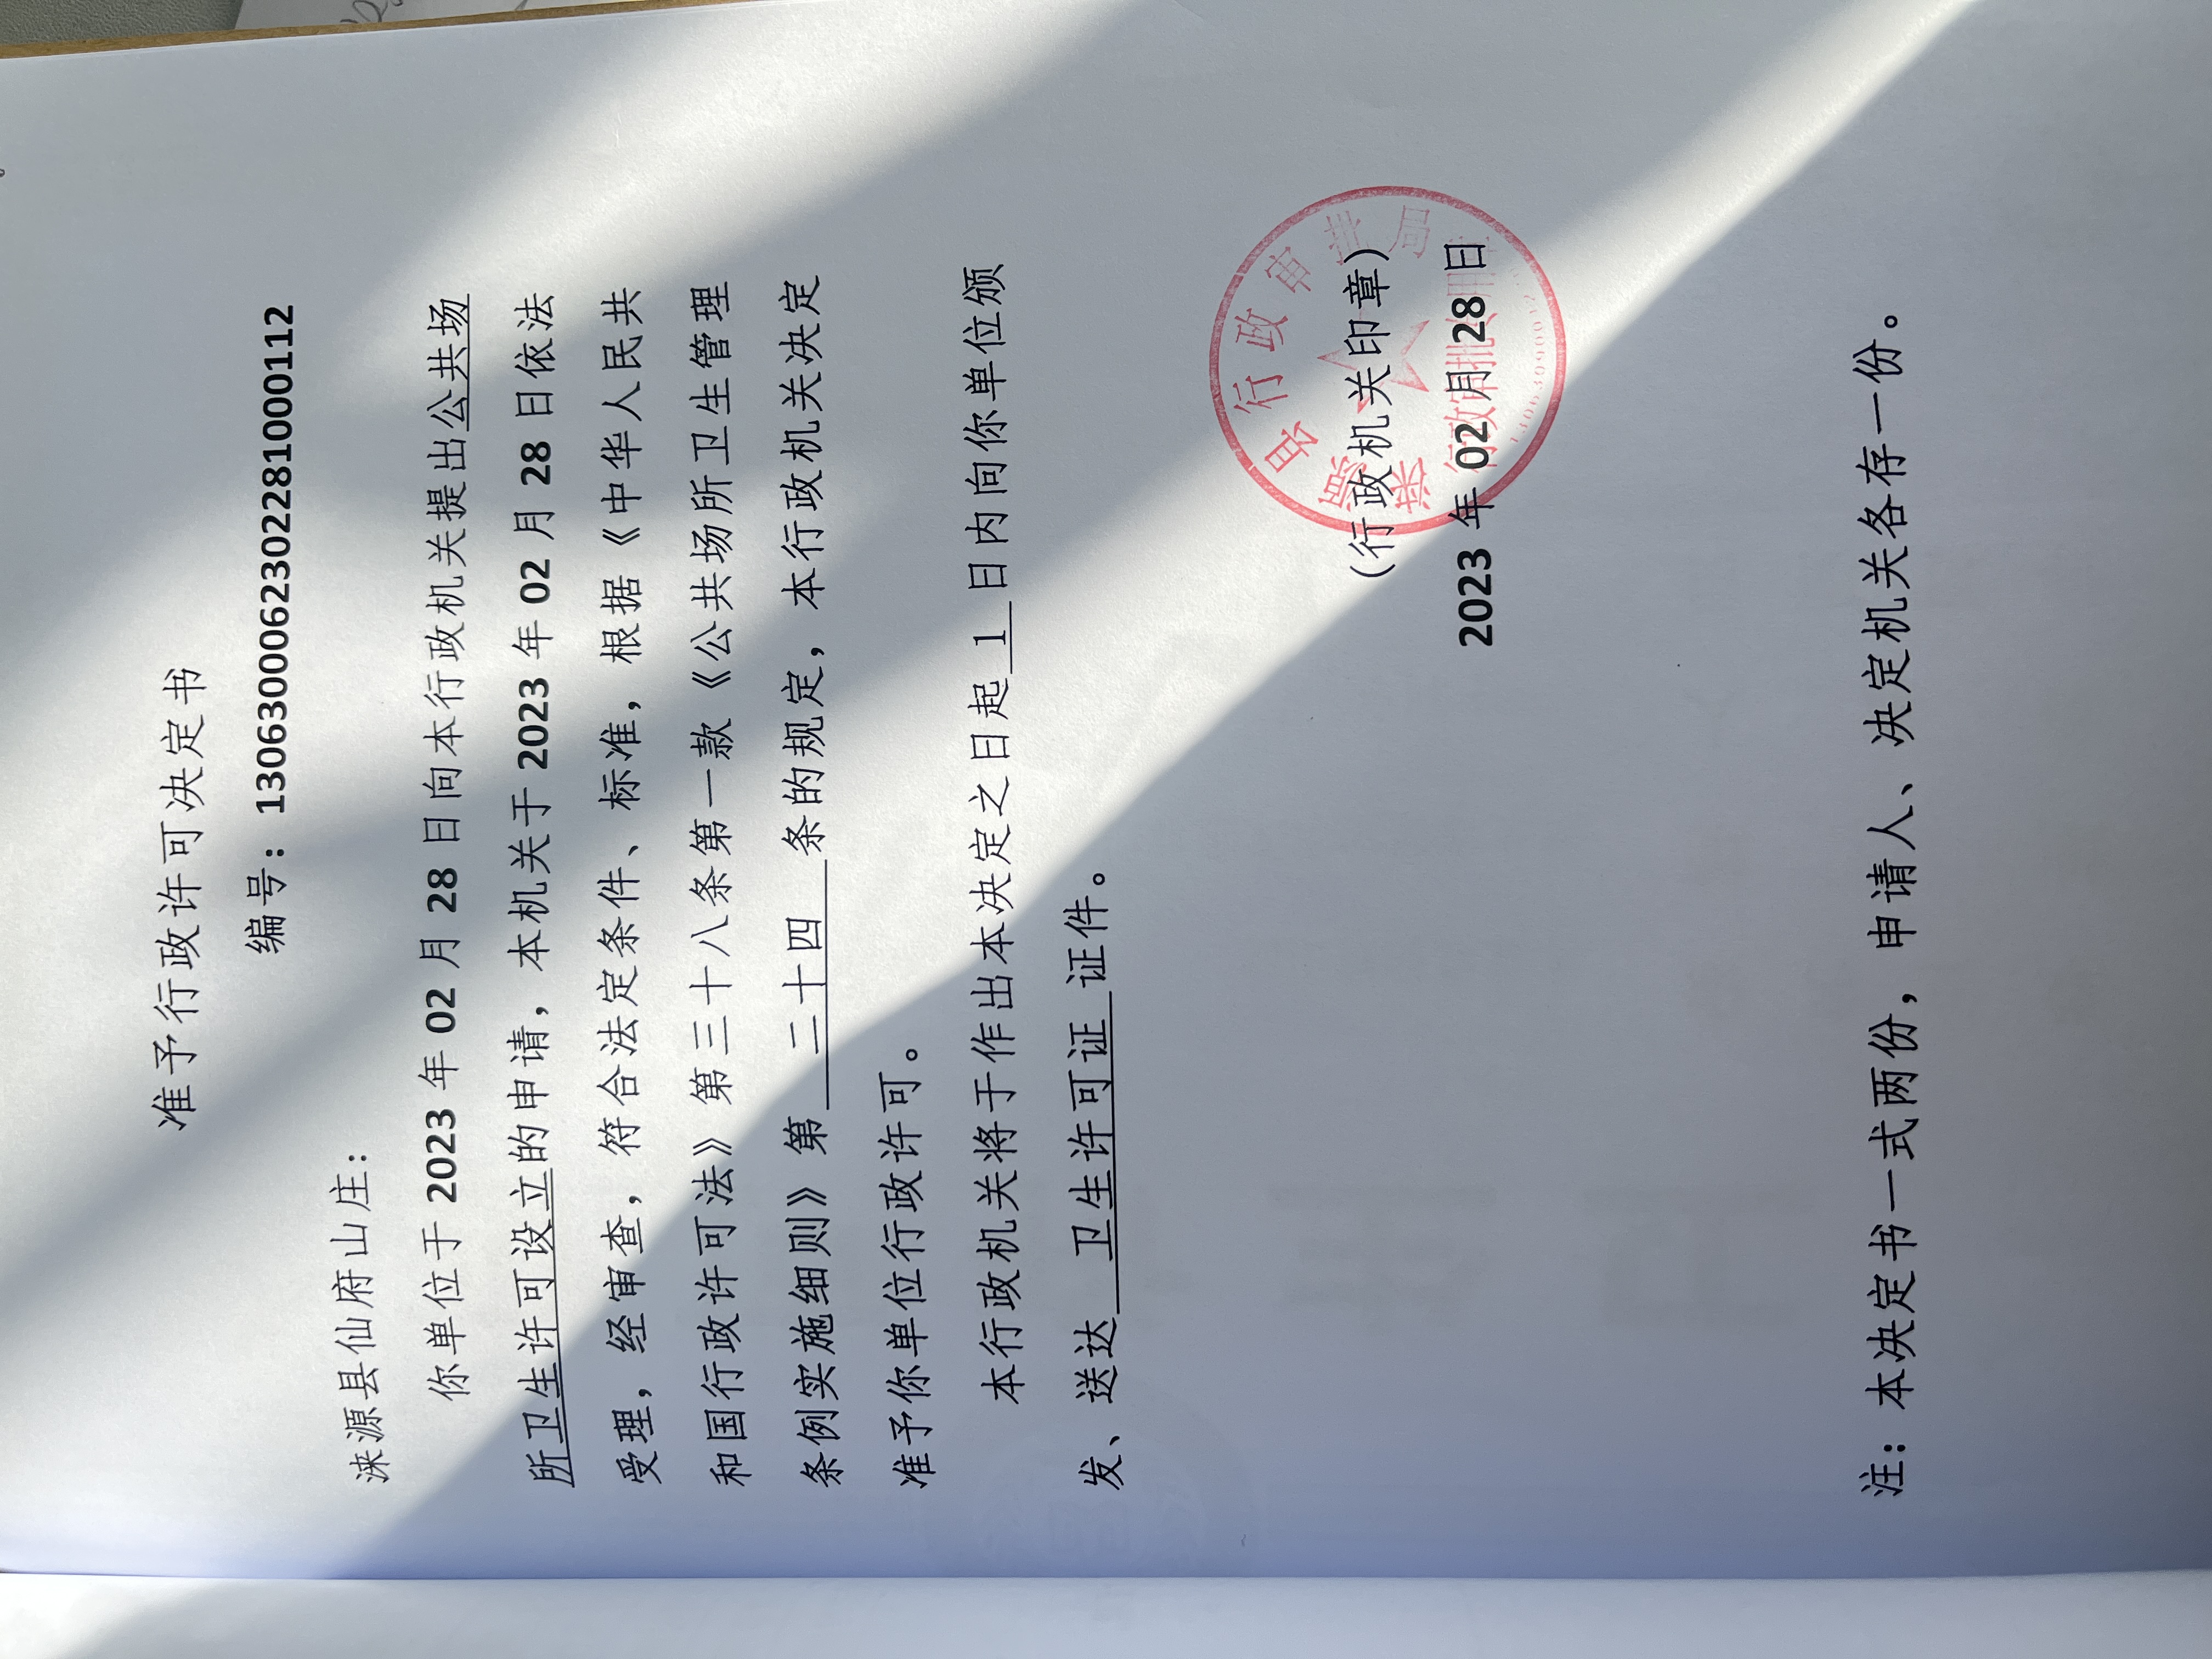 准予行政许可决定书
编号：130630006230228100​0112
涞源县仙府山庄：
你单位于 2023 年 02 月 28 日向本行政机关提出公共场
所卫生许可设立的申请，本机关于 2023 年 02 月 28 日依法
受理，经审查，符合法定条件、标准，根据《中华人民共
和国行政许可法》第三十八条第一款《公共场所卫生管理
条例实施细则》第 二十四 条的规定，本行政机关决定
准予你单位行政许可。
本行政机关将于作出本决定之日起 1 日内向你单位颁
发、送达 卫生许可证 证件。
涞源县行政审批局
（行政机关印章）
行政审批专用章
2023 年 02 月 28 日
注：本决定书一式两份，申请人、决定机关各存一份。